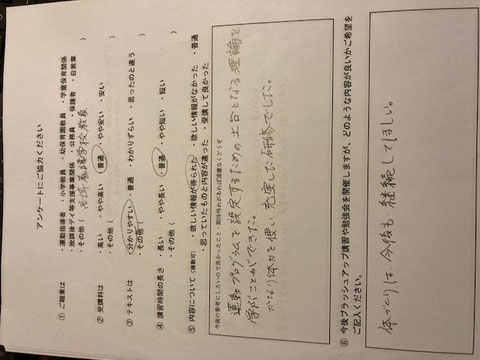 アンケートにご協力ください
① ご職業は ・運動指導者 ・小学教員 ・幼保育園教員 ・学童保育関係
・放課後デイ等支援事業関係 ・公務員 ・保護者 ・自営業
・その他（ 養護学校教員 ）
② 受講料は ・高い ・やや高い ・普通 ・やや安い ・安い
・その他（ ）
③ テキストは ・分かりやすい ・普通 ・わかりずらい ・思ったのと違う
・その他（ ）
④ 講習時間の長さ ・長い ・やや長い ・普通 ・やや短い ・短い
・その他（ ）
⑤ 内容について（複数可） ・欲しい情報が得られた ・欲しい情報がなかった ・普通
・思っていたものと内容が違った ・受講して良かった
今後の参考にしたいので良かったこと・期待外れがあれば遠慮なくどうぞ
運動プログラムを設定するための土台となる理論を
学ぶことができた。
かなり体力を使い充実した研修でした。
⑥ 今後ブラッシュアップ講習や勉強会を開催しますが、どのような内容が良いかご希望を
ご記入ください。
体づくりは今後も継続してほしい。